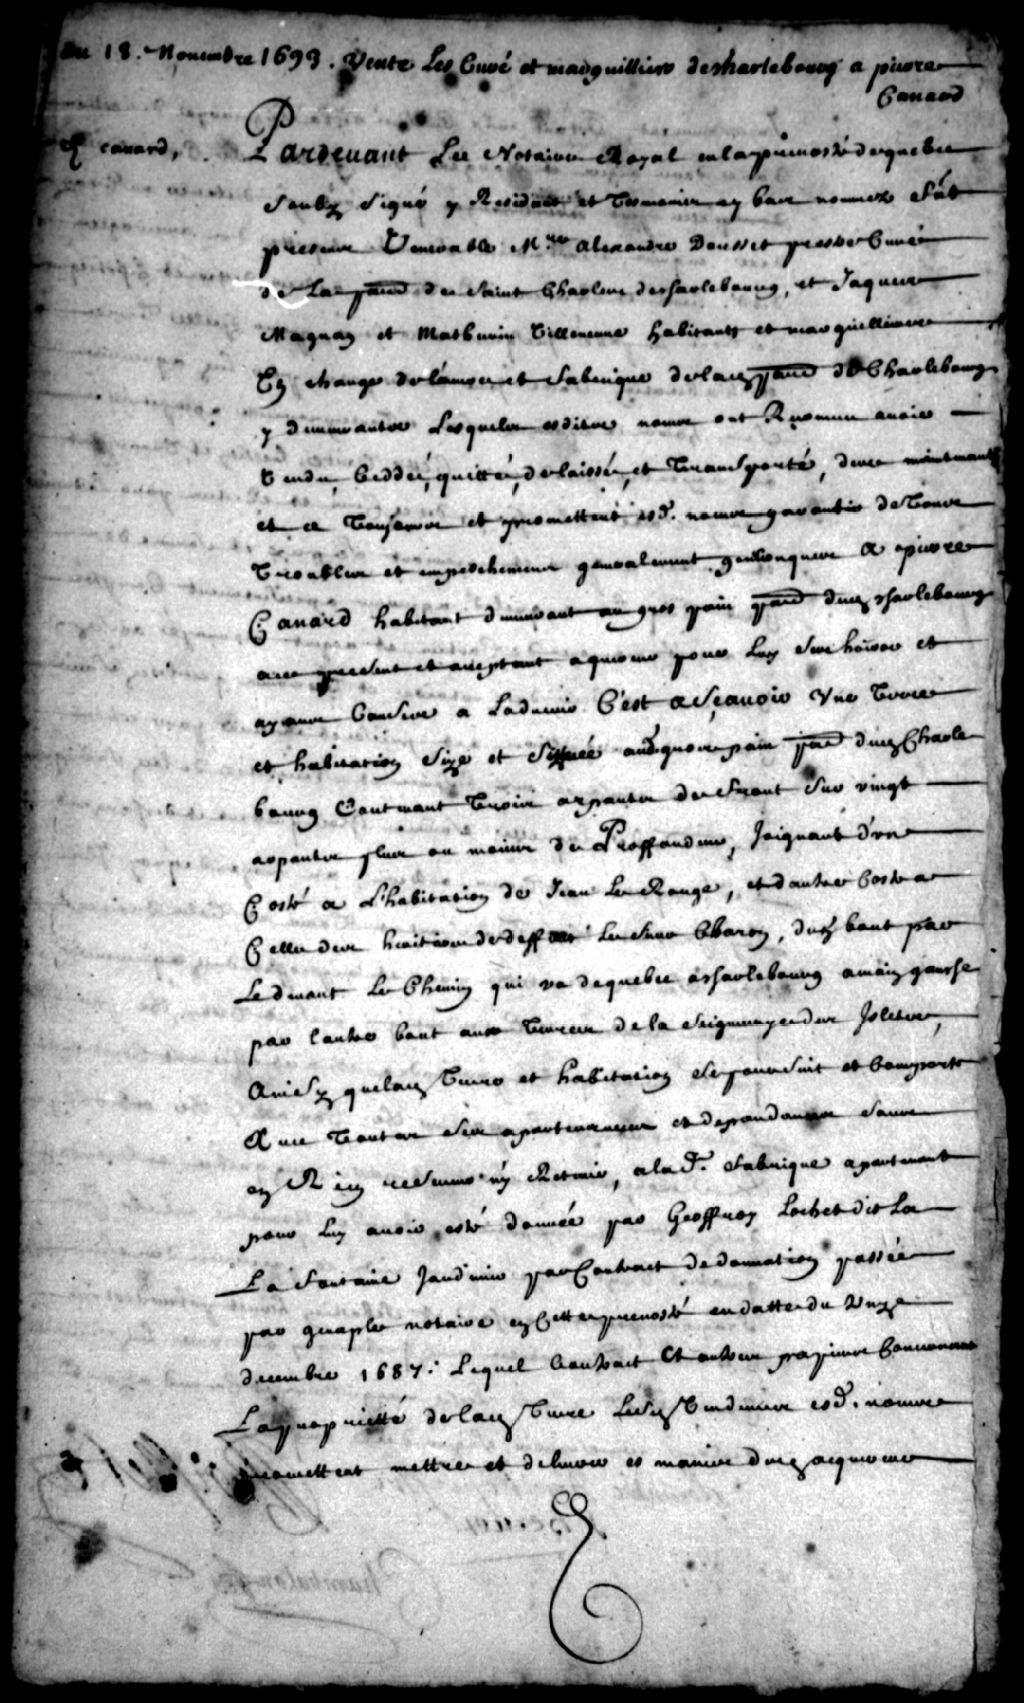 Du 18. Novembre 1693. Vente Les Curé et marguilliers decharlebourg a pierre
Canard
canard,
Pardevant Le Notaire Royal en la prevosté dequebec
Soubz Signé y Residant et Tesmoins cy bas nommez fut
presens Venerable Mre alexandre Doucet prestre Curé
de La parr de Saint Charles decharlebourg, et Jaques
Magnan et Mathurin Villeneuve habitants et marguilliers
En charge de l'œuvre et fabrique de lad parr de Charlebourg
y demeurants Lesquels esdits noms ont Reconnu avoir
Vendu, Ceddé, quitté, delaissé, et Transporté, des maintenant
et a Tousjours et promettent esd. noms garantir de Tous
Troubles et empeschemens generalement quelconques a pierre
Canard habitant demeurant au gros pain parr dud charlebourg
a ce present et acceptant acquereur pour Luy Ses hoirs et
ayans Cause a Ladvenir C'est aSçavoir Une Terre
et habitation Size et Sittuée aud gros pain parr dud Charle
bourg Contenant Trois arpants de front Sur vingt
arpants plus ou moins de Proffondeur, Joignant d'un
Costé a L'habitation de Jean Le Rouge, et d'autre Costé a
Celle des heritiers de deffunt Le Sieur Charon, dud bout par
Le devant Le Chemin qui va dequebec acharlebourg a main gausche
par l'autre bout aux Terres de la Seigneurye des Islets,
Ainsy que lad Terre et habitation Se poursuit et Comporte
Avec Toutes Ses apartenances et dependances Sans
en Rien reserver ny Retenir, a lad. fabrique apartenant
pour Luy avoir esté donnée par Geoffroy Lochet dit La
La fontaine Jaudoin par Contract de donnation passée
par genaple notaire en Cette prevosté en datte du Unze
decembre 1687. Lequel Contract Et autres papiers Concernant
La proprietté de lad Terre Lesd Vendeurs esd. noms
promettent mettre et delivrer es mains dud acquereur